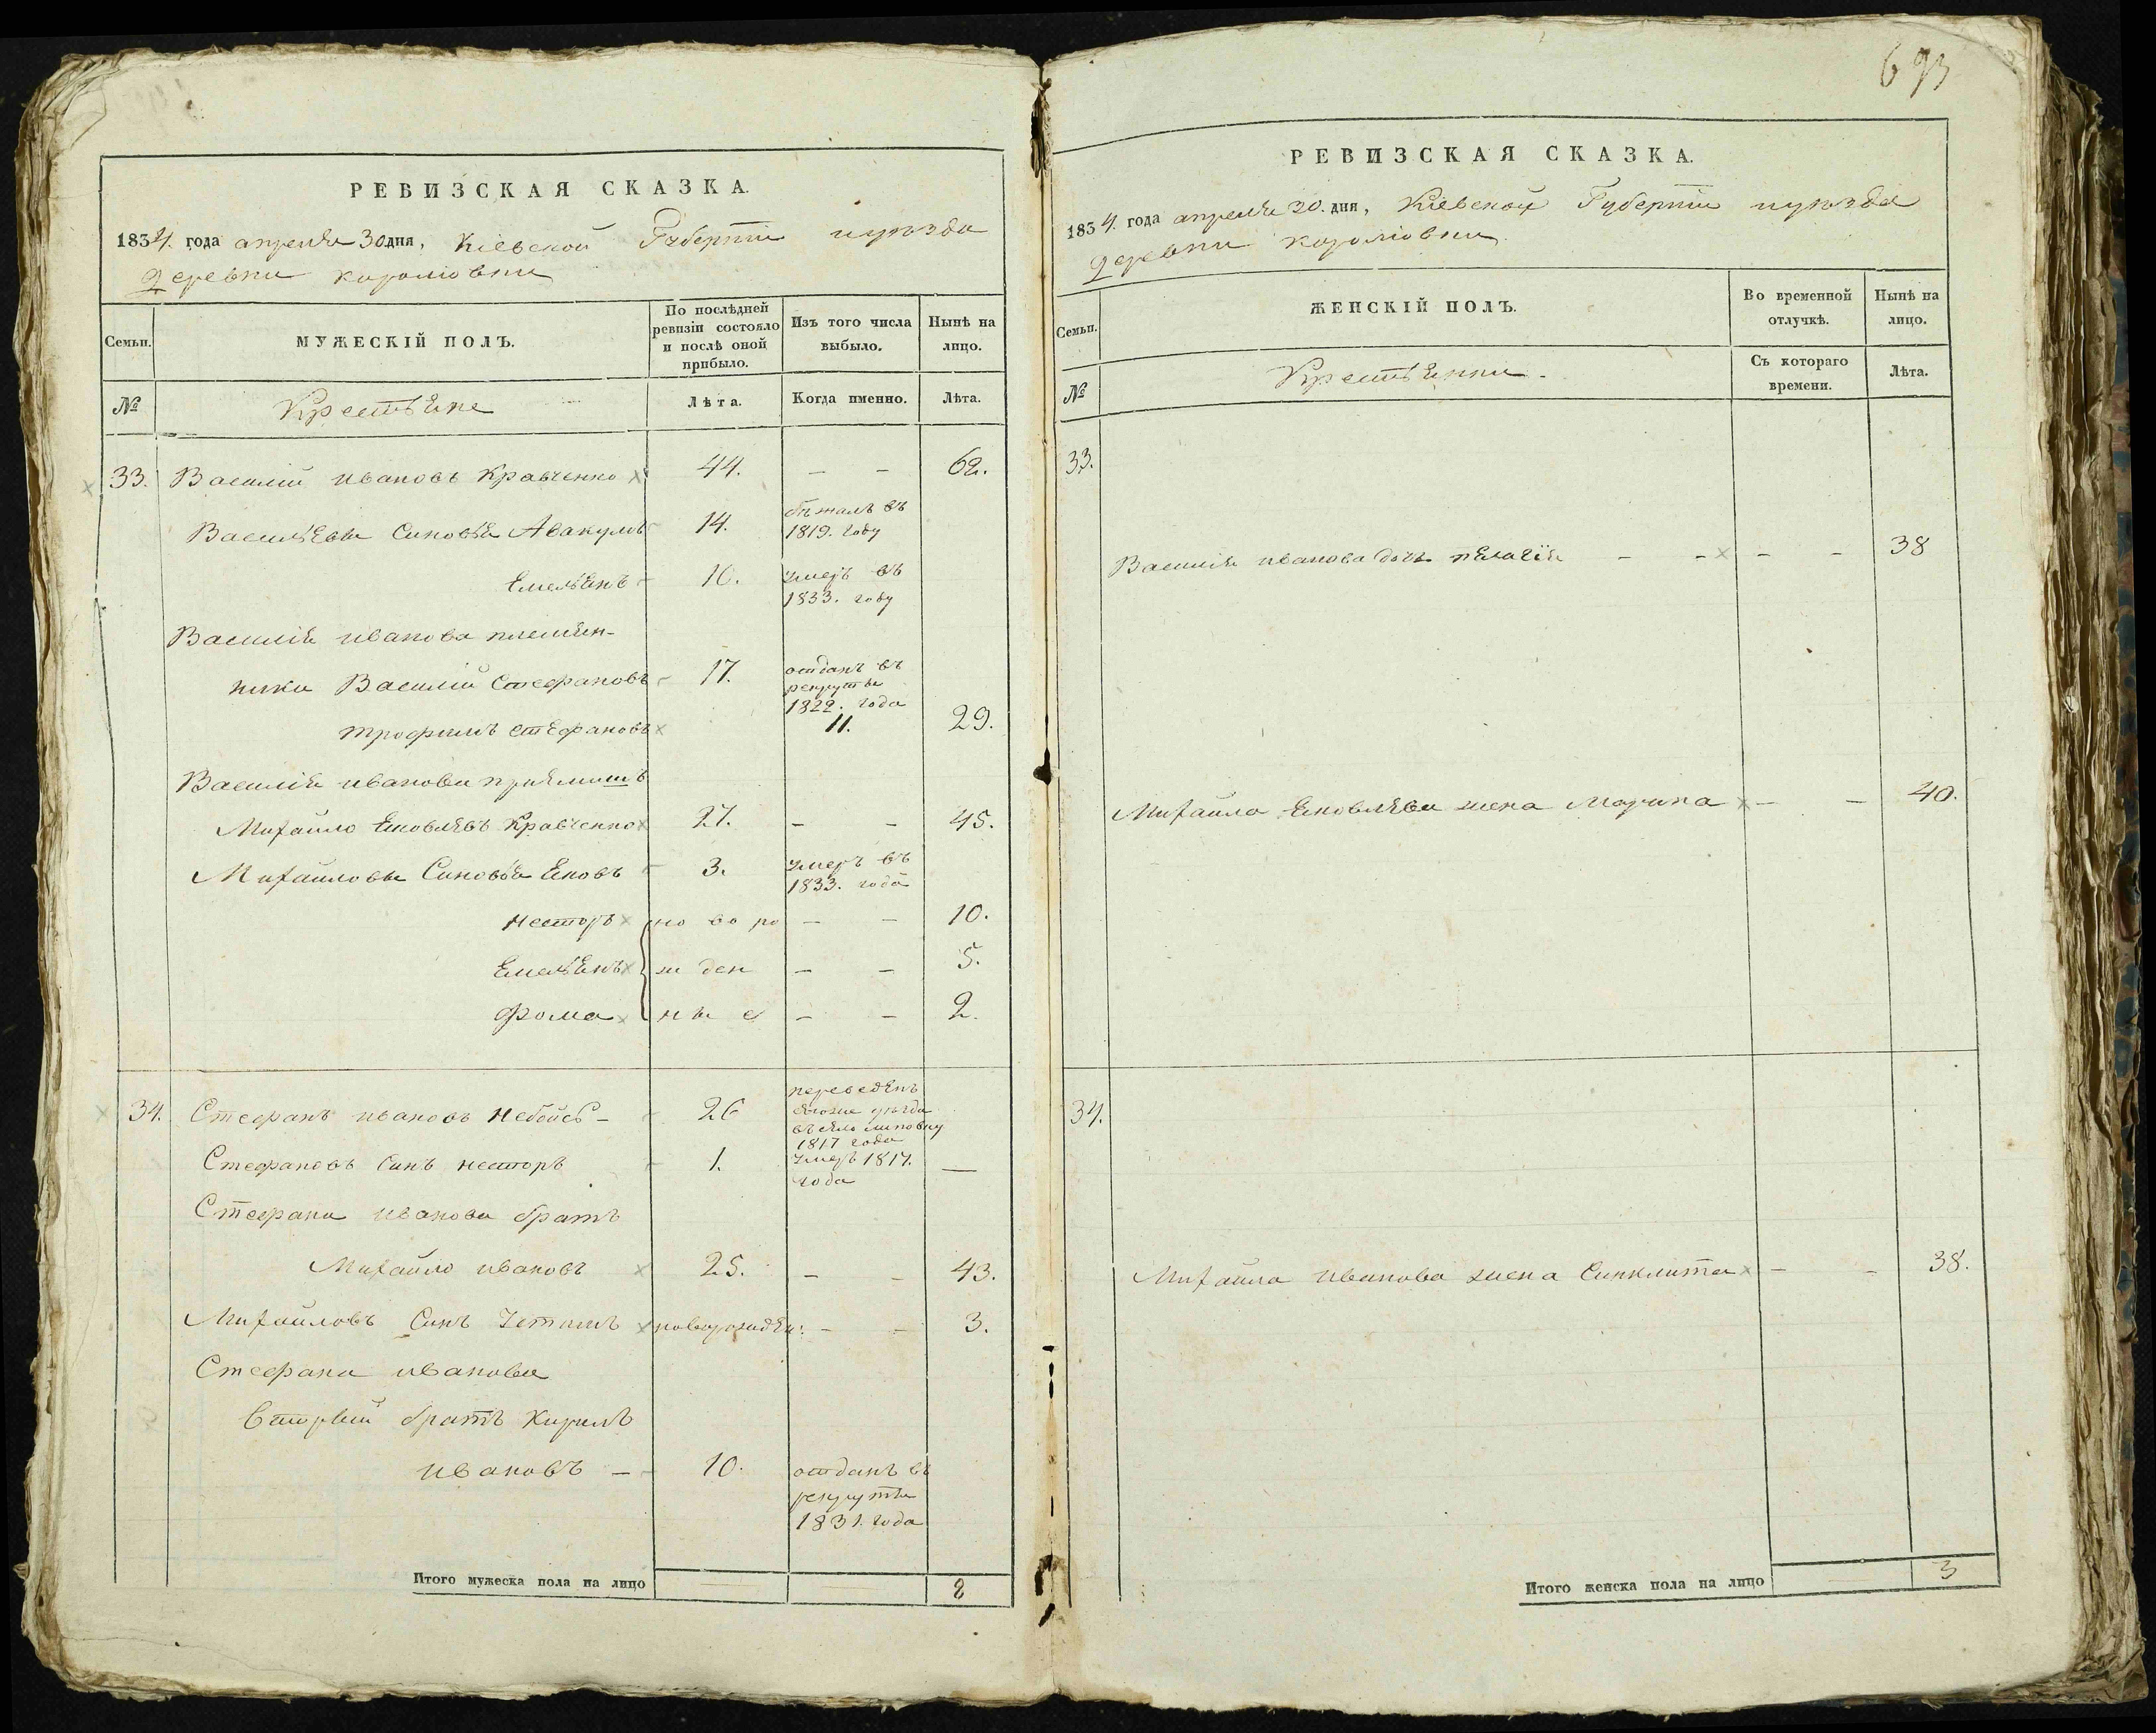 РЕВИЗСКАЯ СКАЗКА.
1834. года апреля 30 дня, Кіевской Губерніи и уѣзда
деревни королювки
Семьи. МУЖЕСКІЙ ПОЛЪ. По послѣдней ревизіи состояло и послѣ оной прибыло. Изъ того числа выбыло. Нынѣ на лицо.
№ Крестьяне Лѣта. Когда именно. Лѣта.
33. Василій ивановъ Кравченко 44. — — 62.
Васильевы Синовья Авакумъ 14. бѣжалъ въ
1819. году
Емельянъ 10. умеръ въ
1833. году
Василія иванова племян-
ники Василій Стефановъ 17. отданъ въ
рекруты
1822. года
трофимъ стефановъ 11. 29.
Василія иванова приямишъ
Михайло Яковлевъ Кравченко 27. — — 45.
Михайловы Синовья Яковъ 3. умеръ въ
1833. года
Несторъ но во ро — — 10.
Емельянъ ж ден — — 5.
Фома ны е — — 2.
34. Стефанъ ивановъ Небойсь — 26 переведенъ
уѣзда
въ село липовку
1817 года
Стефановъ Синъ несторъ 1. умеръ 1817. —
года
Стефана иванова братъ
Михайло ивановъ 25. — — 43.
Михайловъ Синъ новорожден: — — 3.
Стефана иванова
вторый братъ Кирилъ
ивановъ — 10. отданъ въ
рекруты
1831. года
Итого мужеска пола на лицо 8
693
РЕВИЗСКАЯ СКАЗКА.
1834. года апреля 30. дня, Кіевской Губерніи и уѣзда
деревни королювки.
Семьи. ЖЕНСКІЙ ПОЛЪ. Во временной отлучкѣ. Нынѣ на лицо.
№ Крестьянки — Съ котораго времени. Лѣта.
33.
Василія иванова дочь пелагія — — — — 38
Михайла Яковлева жена Марина — — 40.
34.
Михайла иванова жена Синклита — — 38.
Итого женска пола на лицо 3